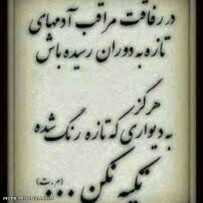 در رفاقت مراقب آدمهای
تازه به دوران رسیده باش
هرگز
به دیواری که تازه رنگ شده
تکیه نکن ...